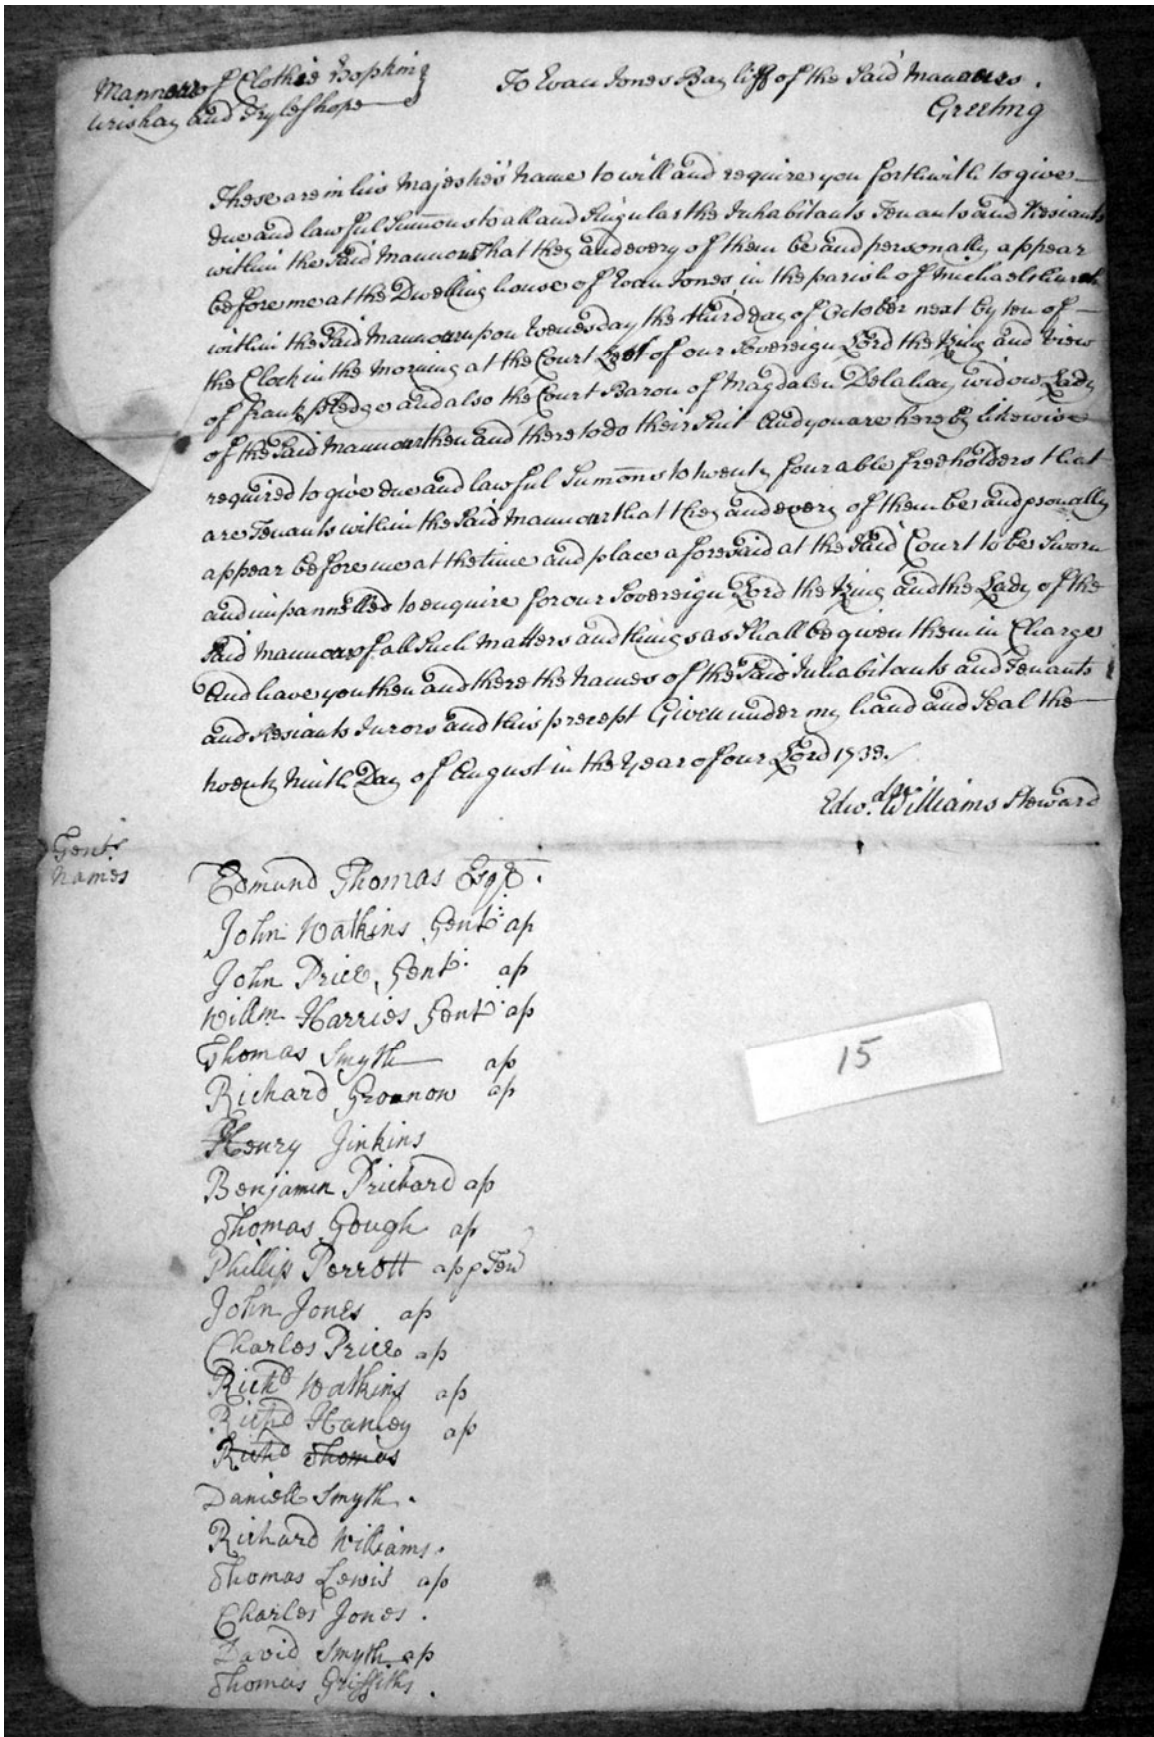 Mannors of Clothie Hopkin
To Evan Jones Bayliff of the said Mannors.
Urishay and Fryleshope
Greeting
These are in his Majesties Name to will and require you forthwith to give
due and lawful Summons to all and Singular the Inhabitants Tenants and Resiants
within the said Mannors That they and every of them be and personally appear
before me at the Dwelling house of Evan Jones in the parish of Michaelchurch
within the said Mannors upon Wenesday the third day of October next by ten of
the Clock in the Morning at the Court Leet of our Sovereign Lord the King and View
of frank pledge and also the Court Baron of Magdalen Delahay widow Lady
of the said Mannors then and there to do their Suit And you are hereby likewise
required to give due and lawful Sumons to twenty four able freeholders that
are Tenants within the said Mannors that they and every of them be and psonally
appear before me at the time and place aforesaid at the said Court to be Sworn
and impannelled to enquire for our Sovereign Lord the King and the Lady of the
said Mannors of all Such Matters and things as Shall be given them in Charge
And have you then and there the Names of the said Inhabitants and Tenants
and Resiants Jurors and this precept Given under my hand and Seal the
twenty Ninth Day of August in the Year of our Lord 1738
Edwd. Williams Steward
Gents.
Names
Edmund Thomas Esqr.
John Watkins Gent: ap
John Price, Gent. ap
Willm Harries Gent: ap
Thomas Smyth ap
Richard Gronnow ap
Henry Jinkins
Benjamin Prichard ap
Thomas Gough ap
Phillip Perrott ap p Ten
John Jones ap
Charles Price ap
Richd Watkins ap
Richd Hanley ap
Richd Thomas
Daniell Smyth.
Richard Williams.
Thomas Lewis ap
Charles Jones.
David Smyth ap
Thomas Griffiths.
15